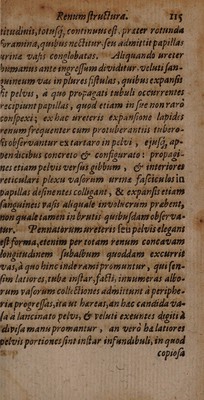 Renum structura. 215
titudinis, totusq́, continuus est, præter rotunda
foramina, quibus nectitur. seu admittit papillas
urinæ vasis conglobatas. Aliquando ureter
humanus ante ingressum dividitur. veluti san-
guineum vas in plures fistulas, quibus expansis
fit pelvis, a quo propagati tubuli occurrentes
recipiunt papillas, quod etiam in sue non raro
conspexi; ex hac ureteris expansione lapides
renum frequenter cum protuberantiis tubero-
sis observantur extartaro in pelvi, ejusq́; ap-
pendicibus concreto & configurato: propagi-
nes etiam pelvis versus gibbum, & interiora
reticulares plexu vasorum urinæ fasciculos in
papillas desinentes colligant, & expansis etiam
sanguineis vasis aliquale involucrum præbent,
non quale tamen in brutis quibusdam observa-
tur. Pennatorum ureteris seu pelvis elegans
est forma, etenim per totam renum concavam
longitudinem subalbum quoddam excurrit
vas, à quo hinc inde rami promuntur, qui sen-
sim latiores, tubæ instar, facti, innumeras albo-
rum vasorum collectiones admittunt à periphe-
ria progressas, ita ut hæreat, an hæc candida va-
sa à lancinato pelvi, & veluti exeuntes digiti à
divisa manu promantur, an verò hæ latiores
pelvis portiones sint instar infundibuli, in quod
copiosa